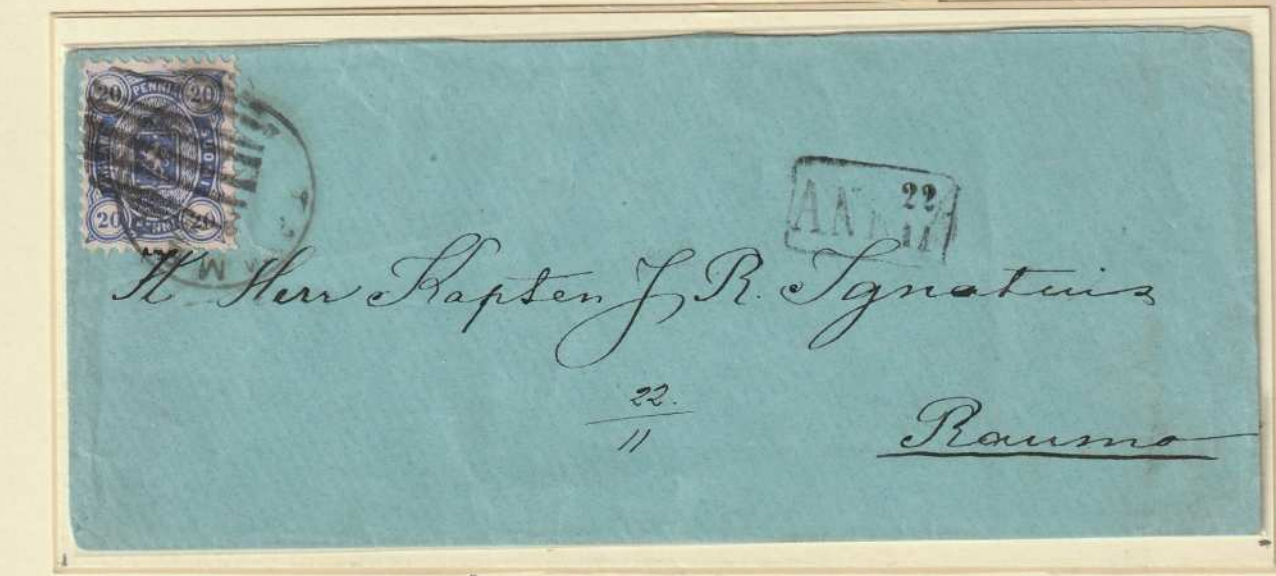 20 PENNIÄ 20
SUOMI
20 PENNI 20
22
ANK
11
H Herr Kapten J. R. Ignatius
22.
11
Raumo